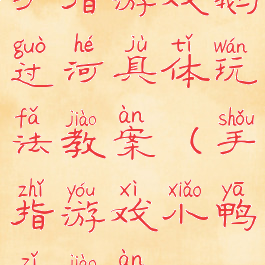 指游戏鹅
guò hé jù tǐ wán
过河具体玩
fǎ jiào àn shǒu
法教案（手
zhǐ yóu xì xiǎo yā
指游戏小鸭
zǐ jiào àn